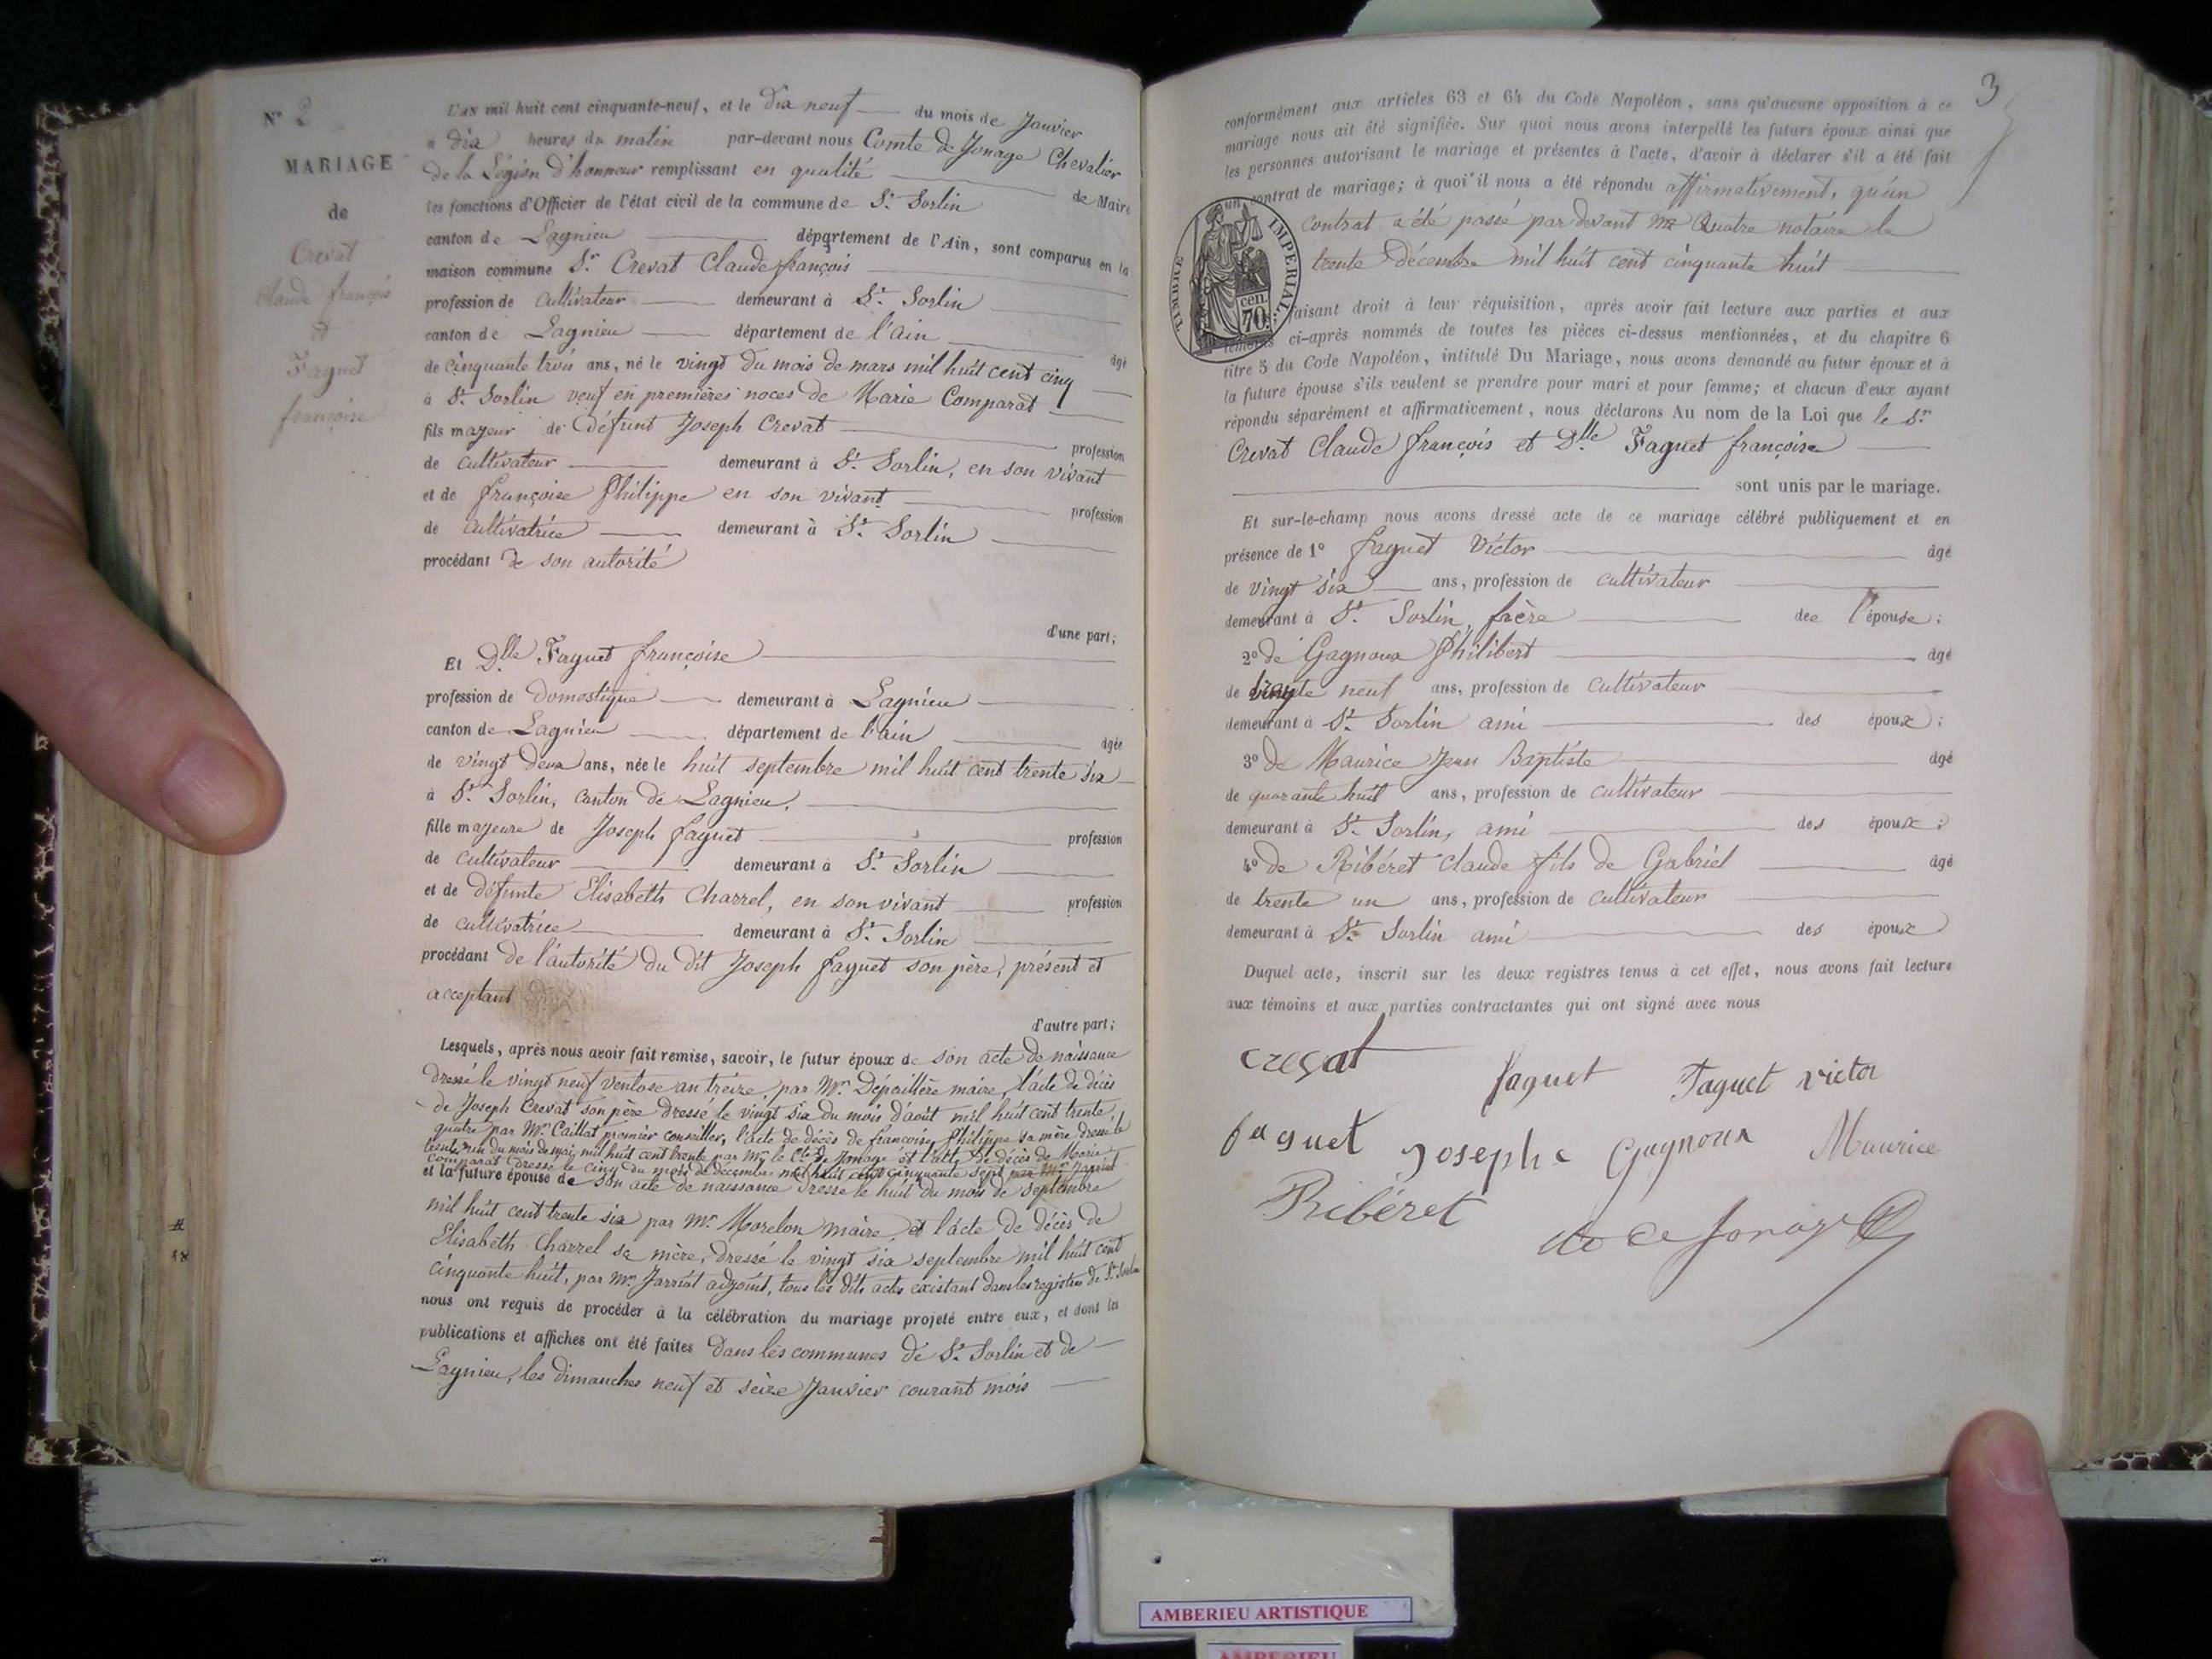 N° 2
MARIAGE
de
Crevat
Claude françois
et
Faguet
françoise
L'AN mil huit cent cinquante-neuf, et le dix neuf du mois de Janvier
à dix heures du matin par-devant nous Comte de Jonage Chevalier
de la Légion d'honneur remplissant en qualité de Maire
les fonctions d'Officier de l'état civil de la commune de St. Sorlin
canton de Lagnieu département de l'Ain, sont comparus en la
maison commune Sr. Crevat Claude françois
profession de cultivateur demeurant à St. Sorlin
canton de Lagnieu département de l'ain
âgé
de cinquante trois ans, né le vingt du mois de mars mil huit cent cinq
à St. Sorlin veuf en premières noces de Marie Comparat
fils majeur de défunt Joseph Crevat profession
de cultivateur demeurant à St. Sorlin, en son vivant
et de françoise Philippe en son vivant profession
de cultivatrice demeurant à St. Sorlin
procédant de son autorité
d'une part;
Et Dlle Faguet françoise
profession de domestique demeurant à Lagnieu
canton de Lagnieu département de l'ain âgée
de vingt deux ans, née le huit septembre mil huit cent trente six
à St. Sorlin, canton de Lagnieu,
fille majeure de Joseph faguet profession
de cultivateur demeurant à St. Sorlin
et de défunte Elisabeth Charrel, en son vivant profession
de cultivatrice demeurant à St. Sorlin
procédant de l'autorité du dit Joseph faguet son père, présent et
acceptant
d'autre part;
Lesquels, après nous avoir fait remise, savoir, le futur époux de son acte de naissance
dressé le vingt neuf ventose an treize, par Mr. Dépaillère maire, l'acte de décès
de Joseph Crevat son père dressé le vingt six du mois d'août mil huit cent trente
quatre par Mr. Caillat premier conseiller, l'acte de décès de francoise Philippe sa mère dressé le
trente un du mois de mai, mil huit cent trente par Mr. le Cte de Jonage et l'acte de décès de Marie
Comparat dressé le cinq du mois de décembre mil huit cent cinquante sept par Mr. Jarriat
et la future épouse de son acte de naissance dressé le huit du mois de septembre
mil huit cent trente six par Mr. Morelon maire, et l'acte de décès de
Elisabeth Charrel sa mère, dressé le vingt six septembre mil huit cent
cinquante huit, par Mr. Jarriat adjoint, tous les dits actes existant dans les registres de St. Sorlin
nous ont requis de procéder à la célébration du mariage projeté entre eux, et dont les
publications et affiches ont été faites dans les communes de St. Sorlin et de
Lagnieu, les dimanches neuf et seize Janvier courant mois
3
conformément aux articles 63 et 64 du Code Napoléon, sans qu'aucune opposition à ce
mariage nous ait été signifiée. Sur quoi nous avons interpellé les futurs époux ainsi que
les personnes autorisant le mariage et présentes à l'acte, d'avoir à déclarer s'il a été fait
contrat de mariage; à quoi il nous a été répondu affirmativement, qu'un
contrat a été passé par devant me Quatre notaire le
trente Décembre mil huit cent cinquante huit
TIMBRE IMPERIAL
un
cen.
70.
faisant droit à leur réquisition, après avoir fait lecture aux parties et aux
témoins ci-après nommés de toutes les pièces ci-dessus mentionnées, et du chapitre 6
titre 5 du Code Napoléon, intitulé Du Mariage, nous avons demandé au futur époux et à
la future épouse s'ils veulent se prendre pour mari et pour femme; et chacun d'eux ayant
répondu séparément et affirmativement, nous déclarons Au nom de la Loi que le Sr.
Crevat Claude françois et Dlle Faguet francoise
sont unis par le mariage.
Et sur-le-champ nous avons dressé acte de ce mariage célébré publiquement et en
présence de 1° faguet Victor âgé
de vingt six ans, profession de cultivateur
demeurant à St. Sorlin, frère dee l'épouse;
2° de Gagnoux Philibert âgé
de trente neuf ans, profession de cultivateur
demeurant à St. Sorlin ami des époux;
3° de Maurice Jean Baptiste âgé
de quarante huit ans, profession de cultivateur
demeurant à St. Sorlin, ami des époux;
4° de Ribéret Claude fils de Gabriel âgé
de trente un ans, profession de cultivateur
demeurant à St. Sorlin ami des époux
Duquel acte, inscrit sur les deux registres tenus à cet effet, nous avons fait lecture
aux témoins et aux parties contractantes qui ont signé avec nous
crevat faguet Faguet victor
faguet Josephe Gagnoux Maurice
Ribéret de Jonage
AMBERIEU ARTISTIQUE
AMBERIEU